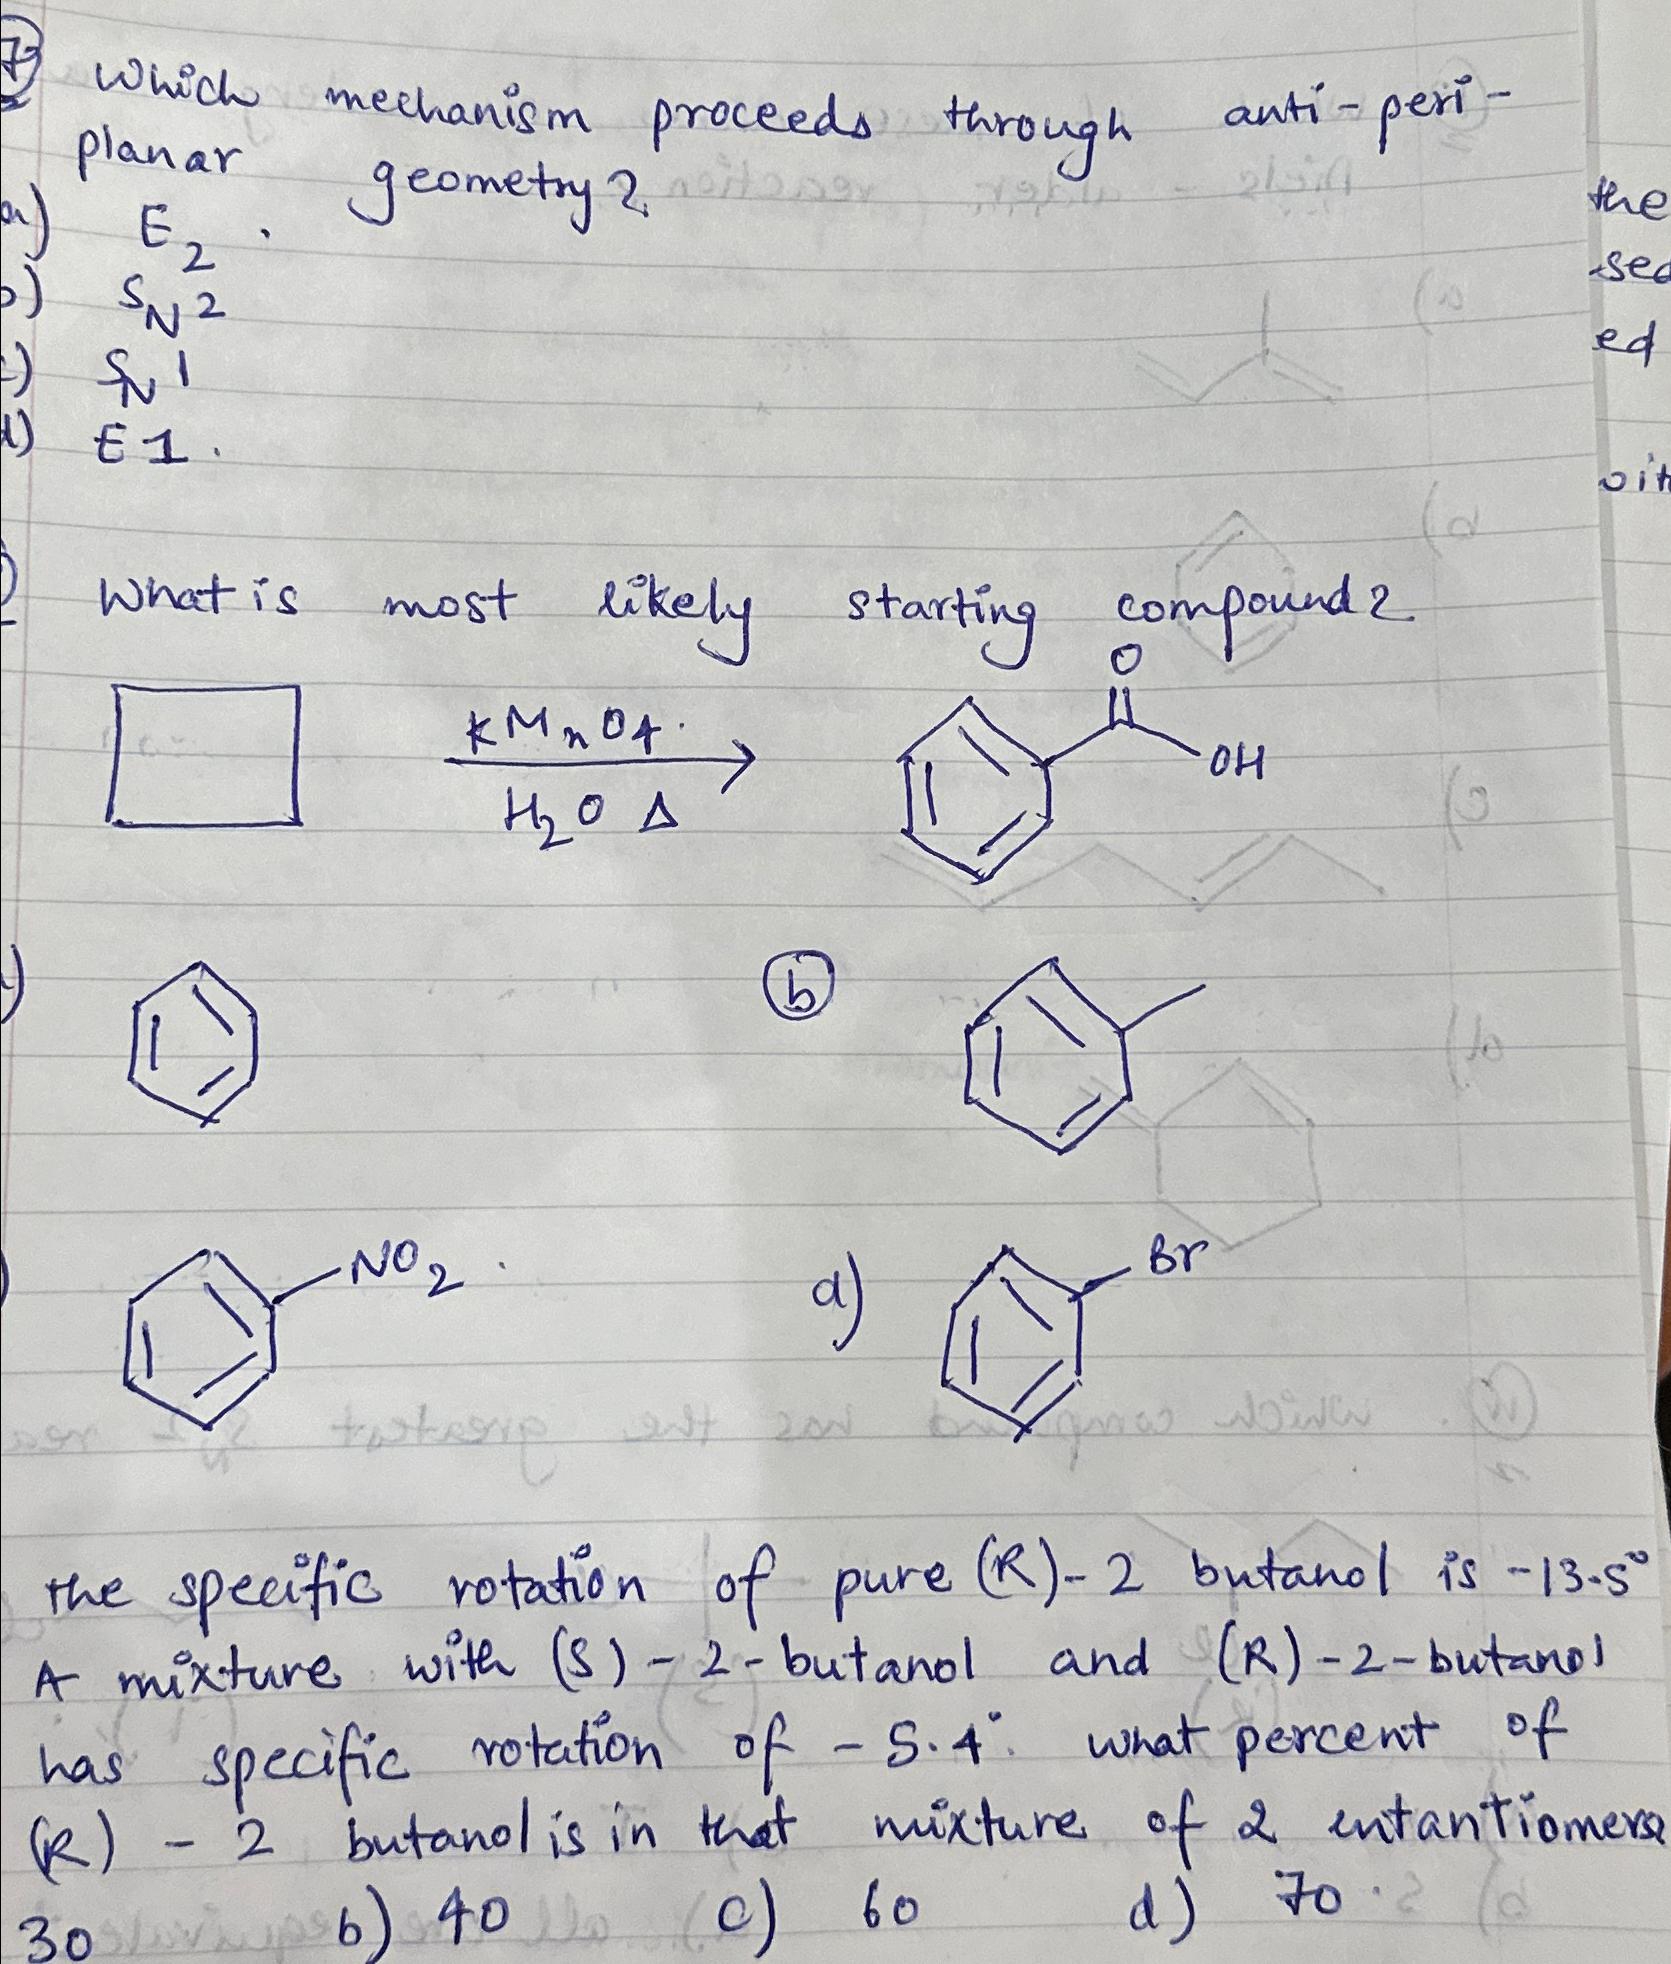 7
Which mechanism proceeds through anti-peri-
planar geometry?
a) E2.
b) SN2
c) SN1
d) E1.
What is most likely starting compound?
KMnO4.
H2O Δ
O
OH
b
NO2.
d) Br
The specific rotation of pure (R)-2 butanol is -13.5°
A mixture with (S)-2-butanol and (R)-2-butanol
has specific rotation of -5.4°. what percent of
(R)-2 butanol is in that mixture of 2 entantiomers
30 b) 40 c) 60 d) 70.
the
sed
ed